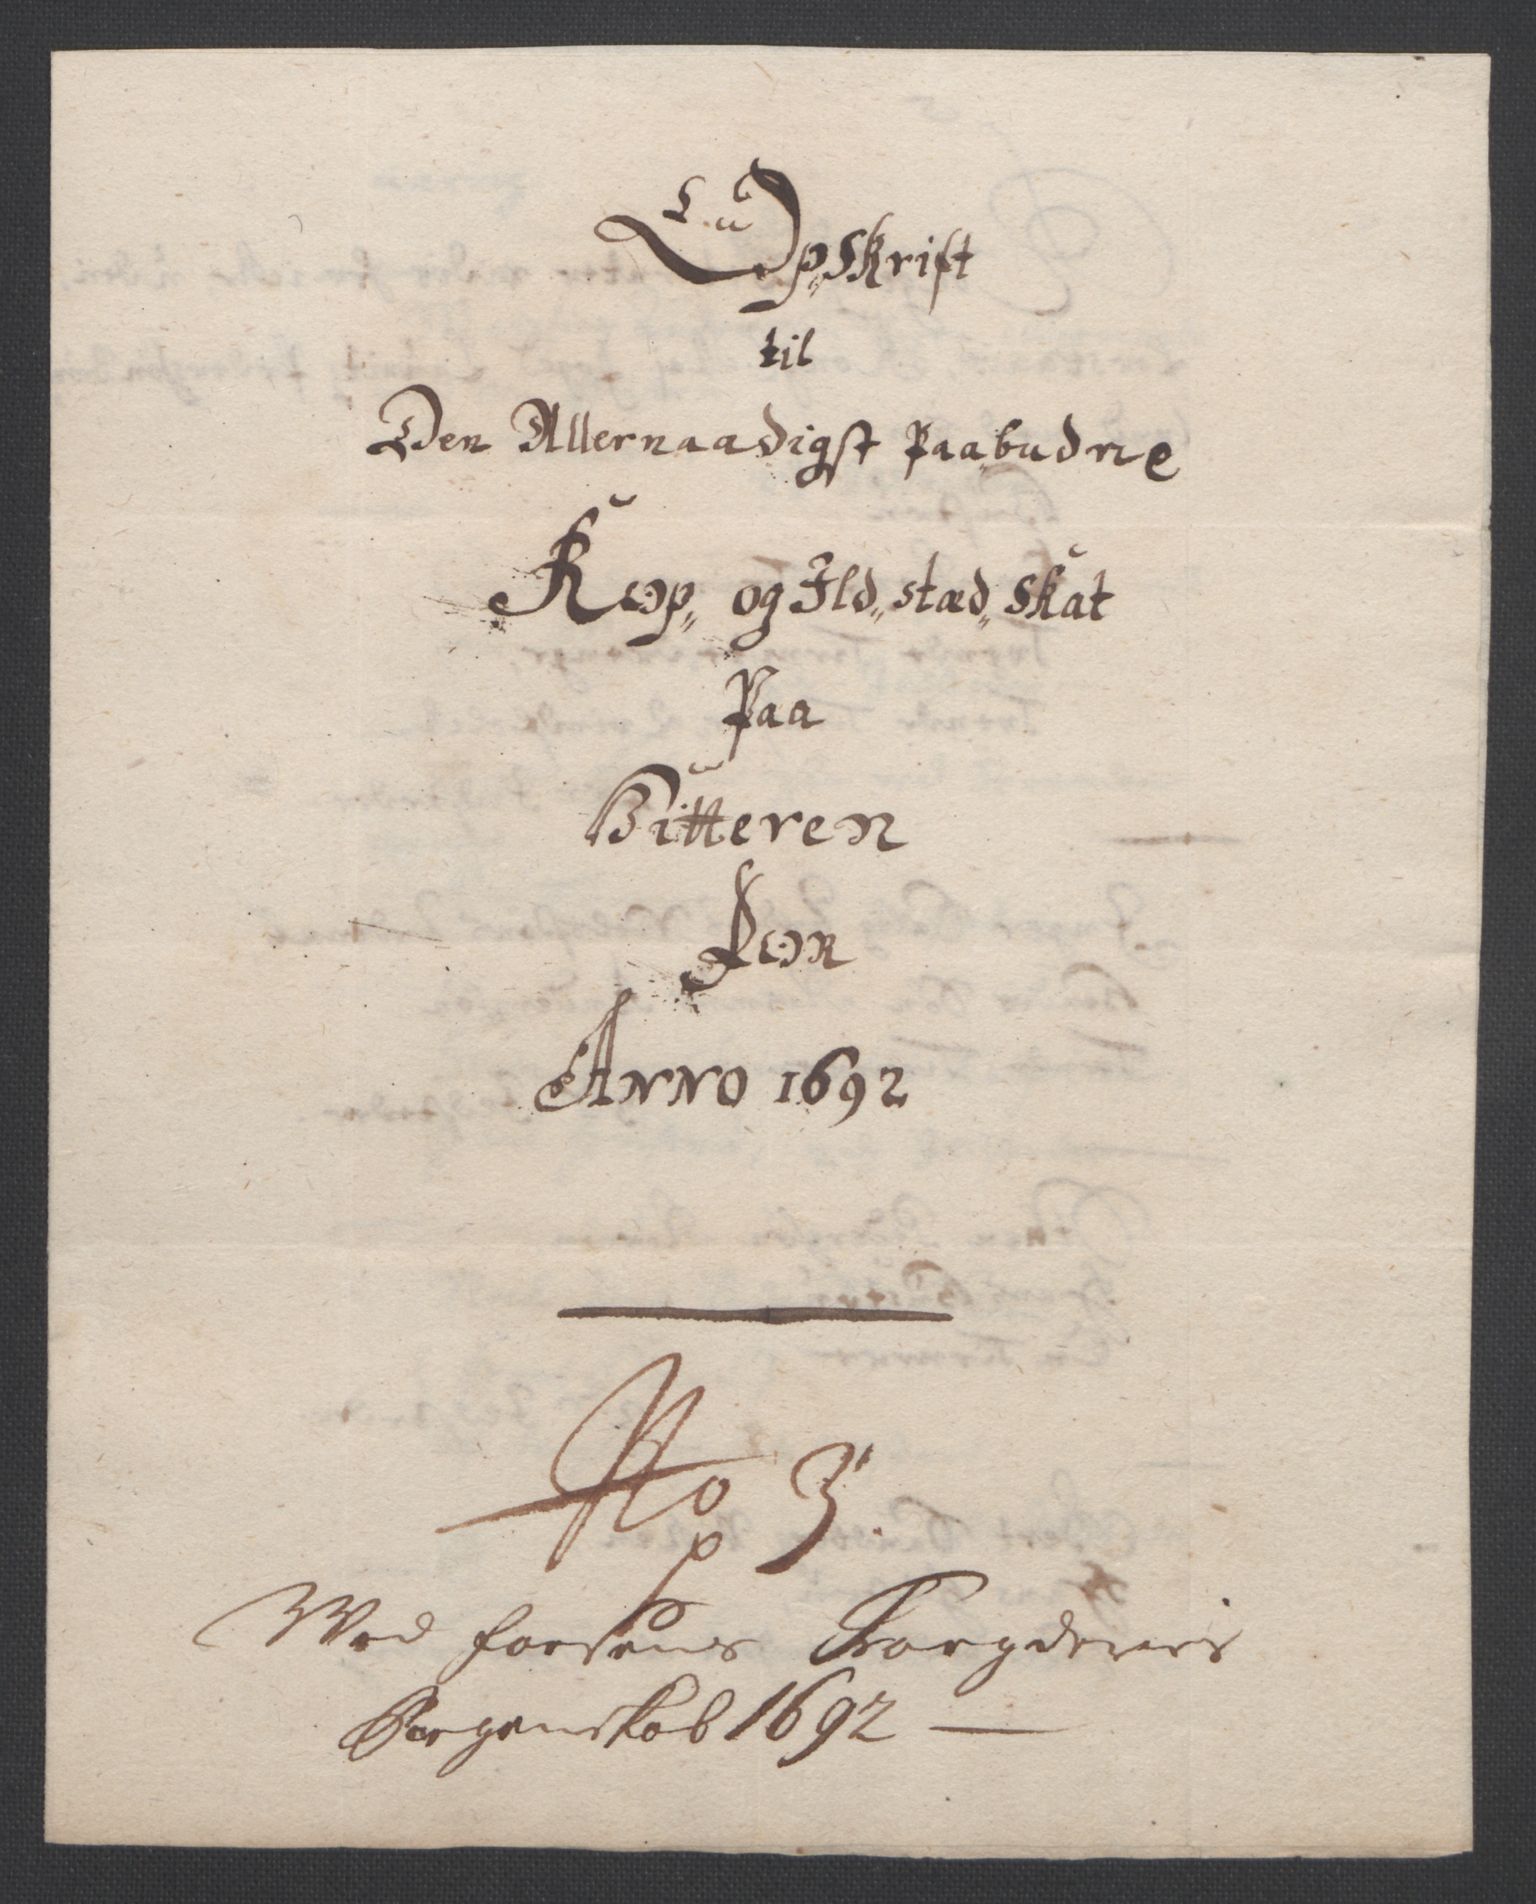 Opskrift
til
Den Allernaadigst Paabudne
Kop„ og Ild„stæd„Skat
Paa
Hitteren
For
Anno 1692
No 3.
Wed fosens Fougderies
Regenskab 1692